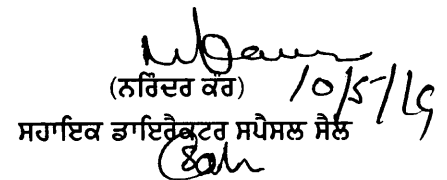 (ਨਰਿੰਦਰ ਕੌਰ) 10/5/19
ਸਹਾਇਕ ਡਾਇਰੈਕਟਰ ਸਪੈਸਲ ਸੈਲ